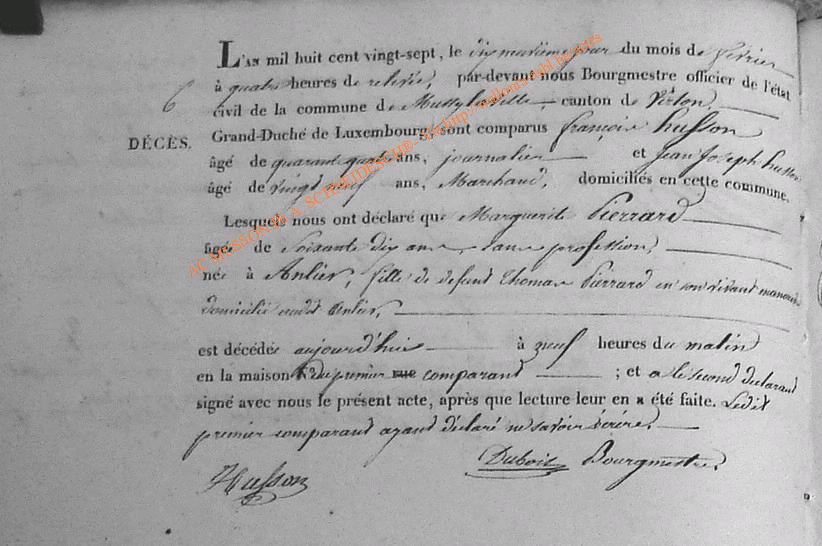 L'AN mil huit cent vingt-sept, le dixneuvième jour du mois de février
à quatre heures de relevée, par-devant nous Bourgmestre officier de l'état
6
civil de la commune de Mussylaville canton de Virton,
DÉCÈS.
Grand-Duché de Luxembourg, sont comparus françois husson
âgé de quarant quatre ans, journalier et jean joseph husson
âgé de vingt neuf ans, Marchand, domiciliés en cette commune.
Lesquels nous ont déclaré que Marguerite Pierrard
âgée de Soixante dix ans, sans profession,
née à Anlier, fille de defunt thomas Pierrard en son vivant manouvr
domicilié audit Anlier,
est décédée aujourd'hui à neuf heures du matin
en la maison N.° du premier rue comparant ; et a le second declarant
signé avec nous le présent acte, après que lecture leur en a été faite. Ledit
premier comparant ayant déclaré ne savoir écrire.
Husson
Dubois Bourgmestre